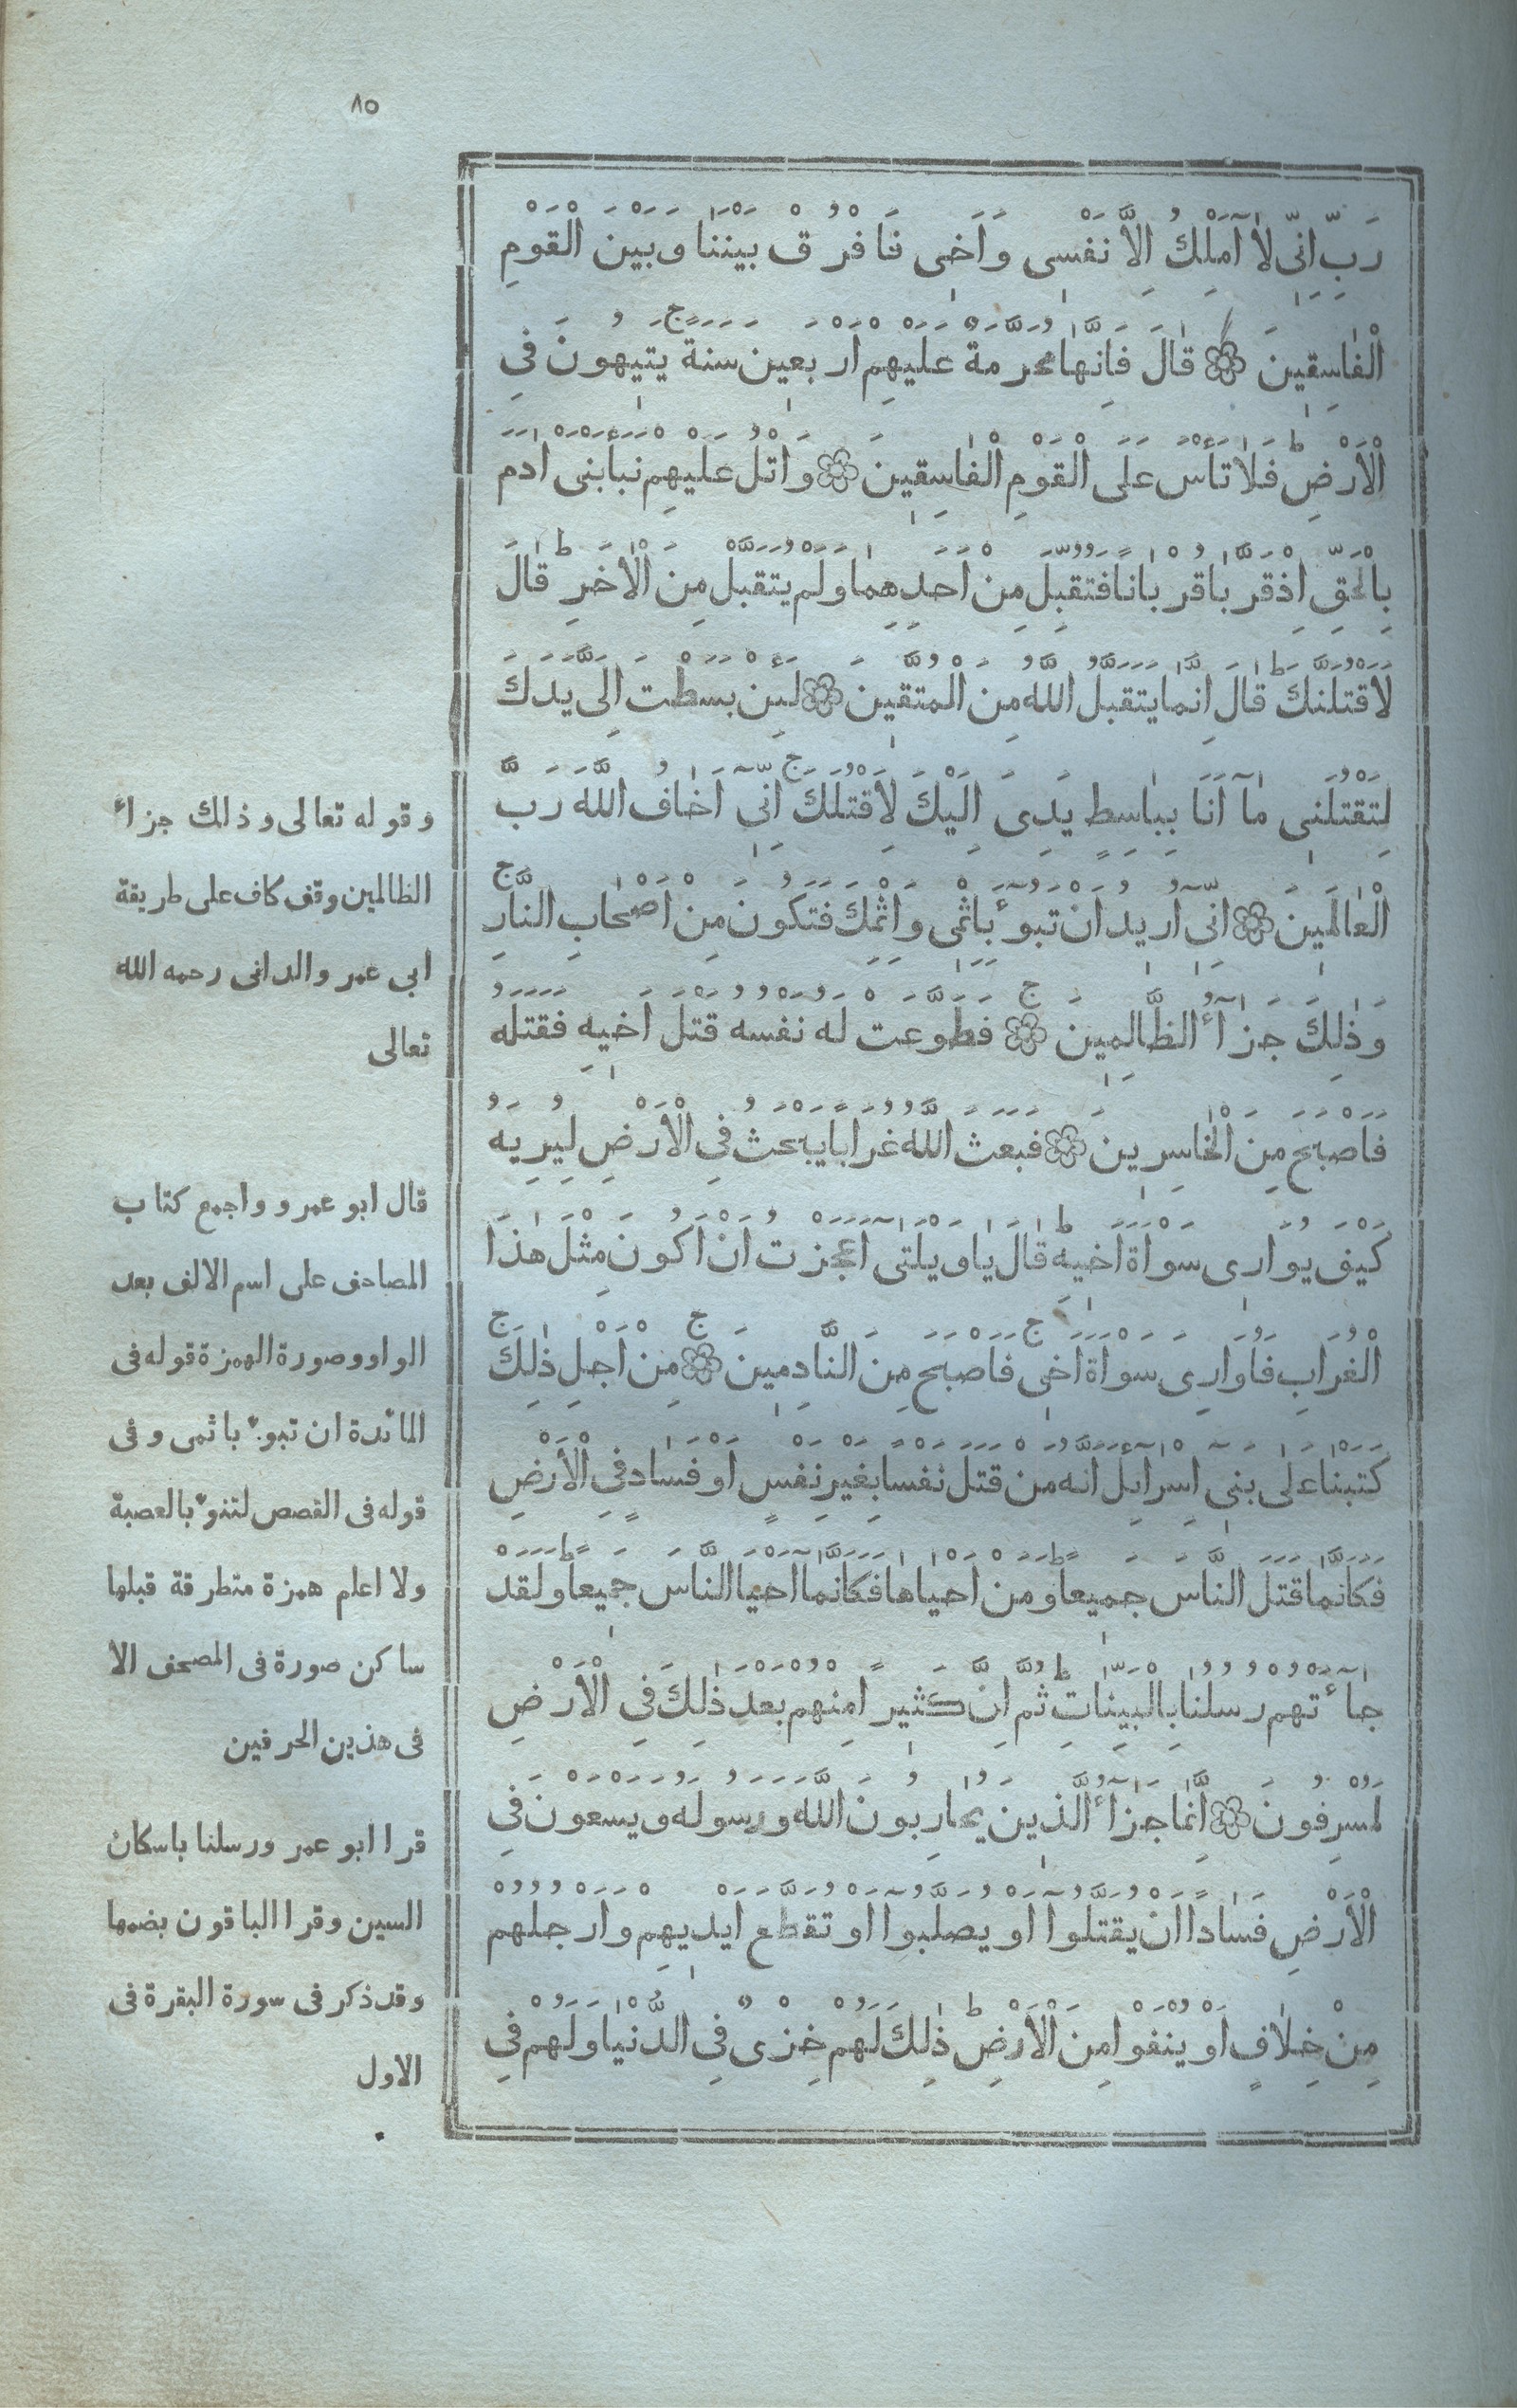 ٨٥
رَبِّ اِنّٖى لَآ اَمْلِكُ اِلَّا نَفْسٖى وَاَخٖى فَافْرُقْ بَيْنَنَا وَبَيْنَ الْقَوْمِ
الْفَاسِقٖينَ قَالَ فَاِنَّهَا مُحَرَّمَةٌ عَلَيْهِمْ اَرْبَعٖينَ سَنَةً يَتٖيهُونَ فِى
الْاَرْضِ فَلَا تَأْسَ عَلَى الْقَوْمِ الْفَاسِقٖينَ وَاتْلُ عَلَيْهِمْ نَبَأَ ابْنَىْ اٰدَمَ
بِالْحَقِّ اِذْ قَرَّبَا قُرْبَانًا فَتُقُبِّلَ مِنْ اَحَدِهِمَا وَلَمْ يُتَقَبَّلْ مِنَ الْاٰخَرِ قَالَ
لَاَقْتُلَنَّكَ قَالَ اِنَّمَا يَتَقَبَّلُ اللّٰهُ مِنَ الْمُتَّقٖينَ لَئِنْ بَسَطْتَ اِلَىَّ يَدَكَ
لِتَقْتُلَنٖى مَآ اَنَا بِبَاسِطٍ يَدِىَ اِلَيْكَ لِاَقْتُلَكَ اِنّٖٓى اَخَافُ اللّٰهَ رَبَّ
الْعَالَمٖينَ اِنّٖٓى اُرٖيدُ اَنْ تَبُوٓءَ بِاِثْمٖى وَاِثْمِكَ فَتَكُونَ مِنْ اَصْحَابِ النَّارِ
وَذٰلِكَ جَزَآءُ الظَّالِمٖينَ فَطَوَّعَتْ لَهُ نَفْسُهُ قَتْلَ اَخٖيهِ فَقَتَلَهُ
فَاَصْبَحَ مِنَ الْخَاسِرٖينَ فَبَعَثَ اللّٰهُ غُرَابًا يَبْحَثُ فِى الْاَرْضِ لِيُرِيَهُ
كَيْفَ يُوَارٖى سَوْاَةَ اَخٖيهِ قَالَ يَا وَيْلَتٰٓى اَعَجَزْتُ اَنْ اَكُونَ مِثْلَ هٰذَا
الْغُرَابِ فَاُوَارِىَ سَوْاَةَ اَخٖى فَاَصْبَحَ مِنَ النَّادِمٖينَ مِنْ اَجْلِ ذٰلِكَ
كَتَبْنَا عَلٰى بَنٖٓى اِسْرَآئِلَ اَنَّهُ مَنْ قَتَلَ نَفْسًا بِغَيْرِ نَفْسٍ اَوْ فَسَادٍ فِى الْاَرْضِ
فَكَاَنَّمَا قَتَلَ النَّاسَ جَمٖيعًا وَمَنْ اَحْيَاهَا فَكَاَنَّمَآ اَحْيَا النَّاسَ جَمٖيعًا وَلَقَدْ
جَآءَتْهُمْ رُسُلُنَا بِالْبَيِّنَاتِ ثُمَّ اِنَّ كَثٖيرًا مِنْهُمْ بَعْدَ ذٰلِكَ فِى الْاَرْضِ
لَمُسْرِفُونَ اِنَّمَا جَزَآءُ الَّذٖينَ يُحَارِبُونَ اللّٰهَ وَرَسُولَهُ وَيَسْعَوْنَ فِى
الْاَرْضِ فَسَادًا اَنْ يُقَتَّلُوٓا اَوْ يُصَلَّبُوٓا اَوْ تُقَطَّعَ اَيْدٖيهِمْ وَاَرْجُلُهُمْ
مِنْ خِلَافٍ اَوْ يُنْفَوْا مِنَ الْاَرْضِ ذٰلِكَ لَهُمْ خِزْىٌ فِى الدُّنْيَا وَلَهُمْ فِى
وقوله تعالى وذلك جزاء
الظالمين وقف كاف على طريقة
ابى عمرو الدانى رحمه الله
تعالى
قال ابو عمرو واجمع كتاب
المصاحف على اسم الالف بعد
الواو وصورة الهمزة قوله فى
المائدة ان تبوء باثمى وفى
قوله فى القصص لتنوء بالعصبة
ولا اعلم همزة متطرفة قبلها
ساكن صورة فى المصحف الا
فى هذين الحرفين
قرا ابو عمرو رسلنا باسكان
السين وقرا الباقون بضمها
وقد ذكر فى سورة البقرة فى
الاول